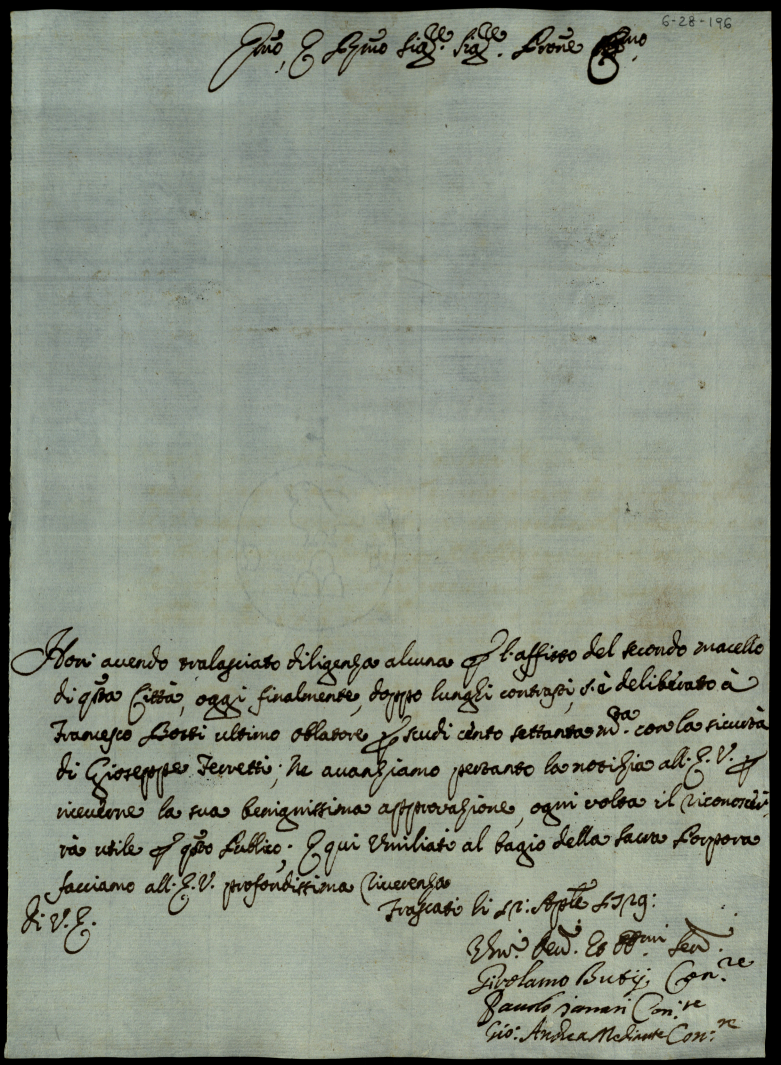 6-28-196
Emo, E Rmo Sig.re Sig.re Prone
Non avendo tralasciato diligenza alcuna p l'affitto del secondo macello
di qsta Città, oggi finalmente, doppo lunghi contrasti, s'è deliberato à
Francesco Botti ultimo oblatore p scudi cento settanta mta. con la sicurtà
di Gioseppe Ferretti; Ne avanziamo pertanto la notizia all'E.V. p
riceverne la sua benignissima approvazione, ogni volta il riconoscie-
rà utile p qsto Publico. E qui Umiliati al bagio della Sacra Porpora
facciamo all'E.V. profondissima riverenza
Di V.E.
Frascati li Aple
Umi. Devi. Et Obbmi Serv.
Girolamo Butij Con.re
Paolo Con.re
Gio: Andrea Con.re